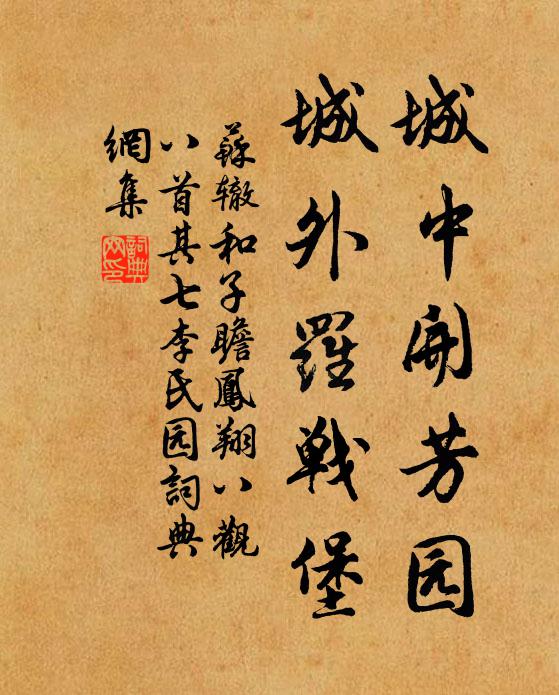 城中開芳园
城外羅戦堡
蘇辙和子瞻鳳翔八觀
八首其七李氏园詞典
網集
詞典
网印